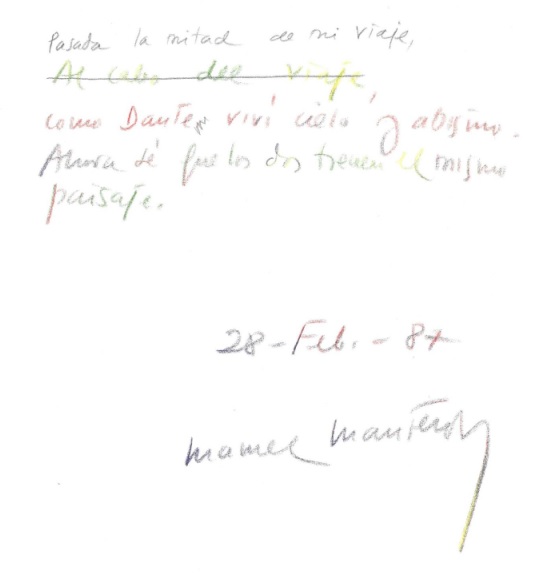 Pasada la mitad de mi viaje,
Al cabo del viaje,
como Dante, viví cielo y abismo.
Ahora sé que los dos tienen el mismo
paisaje.
28-Feb.-87
Manuel Mantero